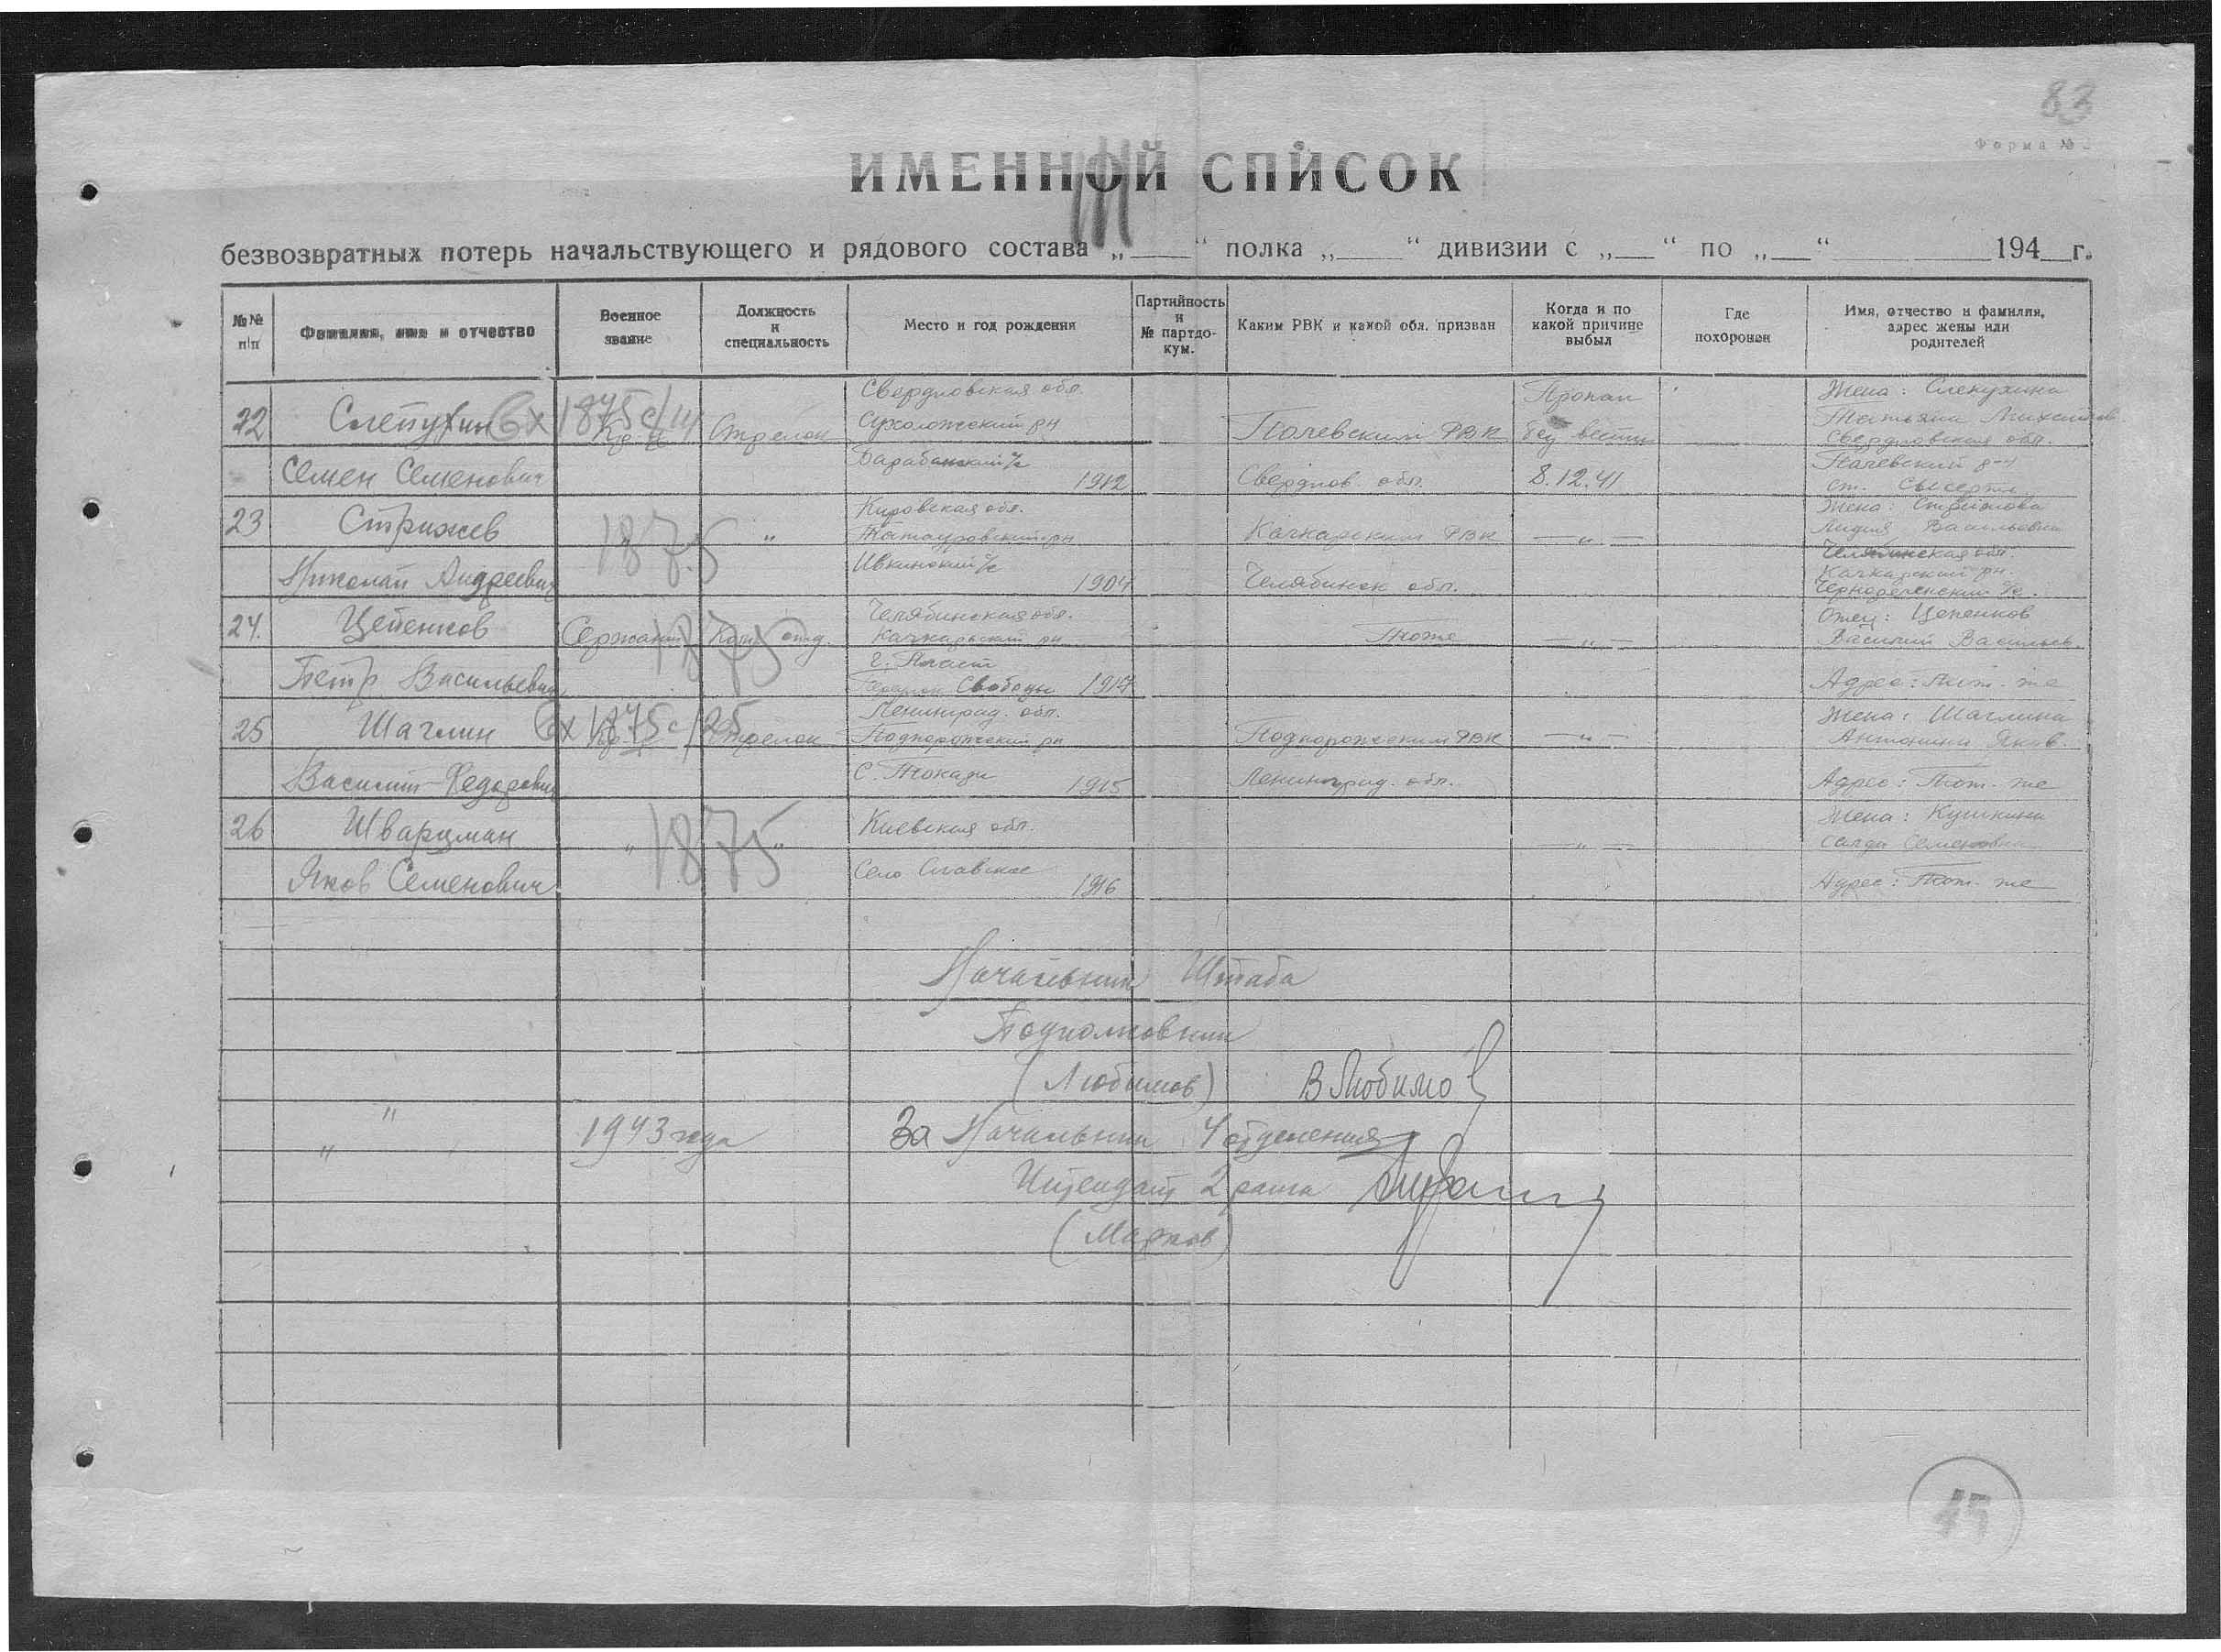 83
Форма №2
ИМЕННОЙ СПИСОК
безвозвратных потерь начальствующего и рядового состава „____“ полка „____“ дивизии с „___“ по „___“ ________ 194__г.
№№ п|п
Фамилия, имя и отчество
Военное звание
Должность и специальность
Место и год рождения
Партийность и № партдокум.
Каким РВК и какой обл. призван
Когда и по какой причине выбыл
Где похоронен
Имя, отчество и фамилия, адрес жены или родителей
22
Слепухин
Семен Семенович
вх 1875с/
Кр-ц
Стрелок
Свердловская обл.
Сухоложский рн
1912
Полевским РВК
Свердлов. обл.
Пропал
без вести
8.12.41
Жена: Слепухина
Татьяна
Свердловская обл.
Полевский р-н
ст. Сысерть
23
Стрижев
Николай Андреевич
1875
"
Кировская обл.
Татауровский рн
Ивкинский
1904
Качкарским РВК
Челябинск обл.
—"—
Жена: Стрижова
Лидия Васильевна
Челябинская обл.
Качкарский рн.
24.
Цепенков
Петр Васильевич
Сержант
1875
Ком. отд.
Челябинская обл.
Качкарский рн
г. Пласт
Свободы 1917
Тоже
—"—
Отец: Цепенков
Василий Васильев.
Адрес: Тот-же
25
Шаглин
Василий Федорович
вх 1875с/25
Кр-ц
Стрелок
Ленинград. обл.
Подпорожский рн
с. Токари
1915
Подпорожским РВК
Ленинград. обл.
—"—
Жена: Шаглина
Антонина Яков.
Адрес: Тот-же
26
Шварцман
Яков Семенович
"
1875
"
Киевская обл.
Село Славское
1916
—"—
Жена: Кушнина
Семеновна
Адрес: Тот-же
Начальник Штаба
Подполковник
(Любимов) ВЛюбимов
" " 1943 года
За Начальник 4 отделения
Интендант 2 ранга
(Марков)
15